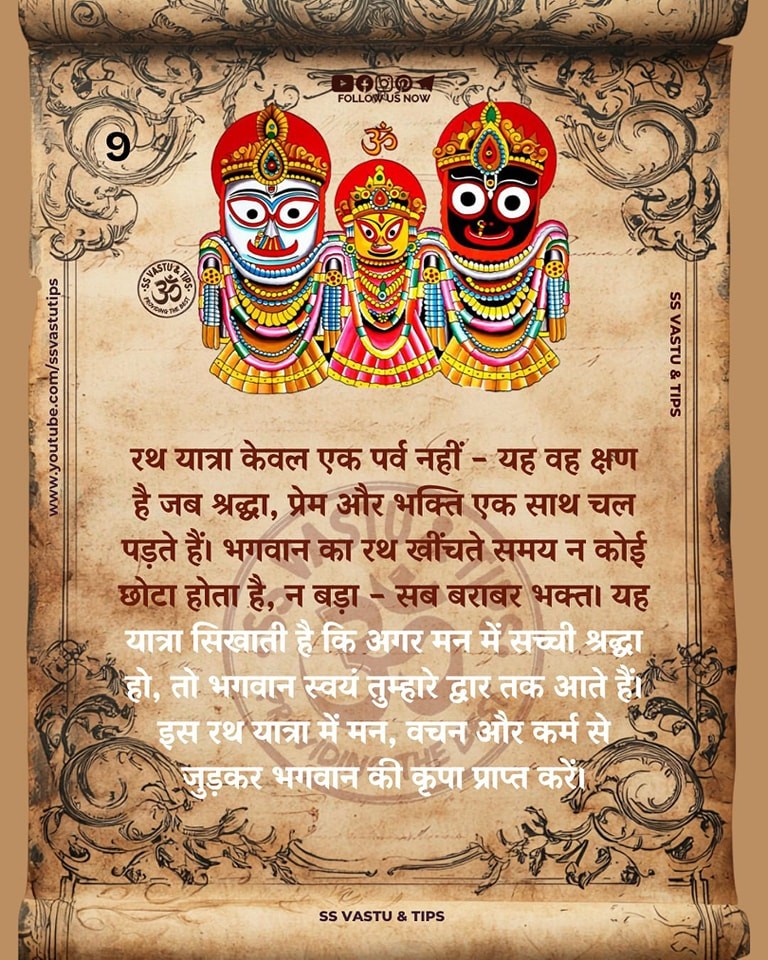 FOLLOW US NOW
ॐ
9
SS VASTU & TIPS
ॐ
PROVIDING THE BEST
www.youtube.com/ssvastutips
SS VASTU & TIPS
रथ यात्रा केवल एक पर्व नहीं – यह वह क्षण
है जब श्रद्धा, प्रेम और भक्ति एक साथ चल
पड़ते हैं। भगवान का रथ खींचते समय न कोई
छोटा होता है, न बड़ा – सब बराबर भक्त। यह
यात्रा सिखाती है कि अगर मन में सच्ची श्रद्धा
हो, तो भगवान स्वयं तुम्हारे द्वार तक आते हैं।
इस रथ यात्रा में मन, वचन और कर्म से
जुड़कर भगवान की कृपा प्राप्त करें।
SS VASTU & TIPS
ॐ
PROVIDING THE BEST
SS VASTU & TIPS